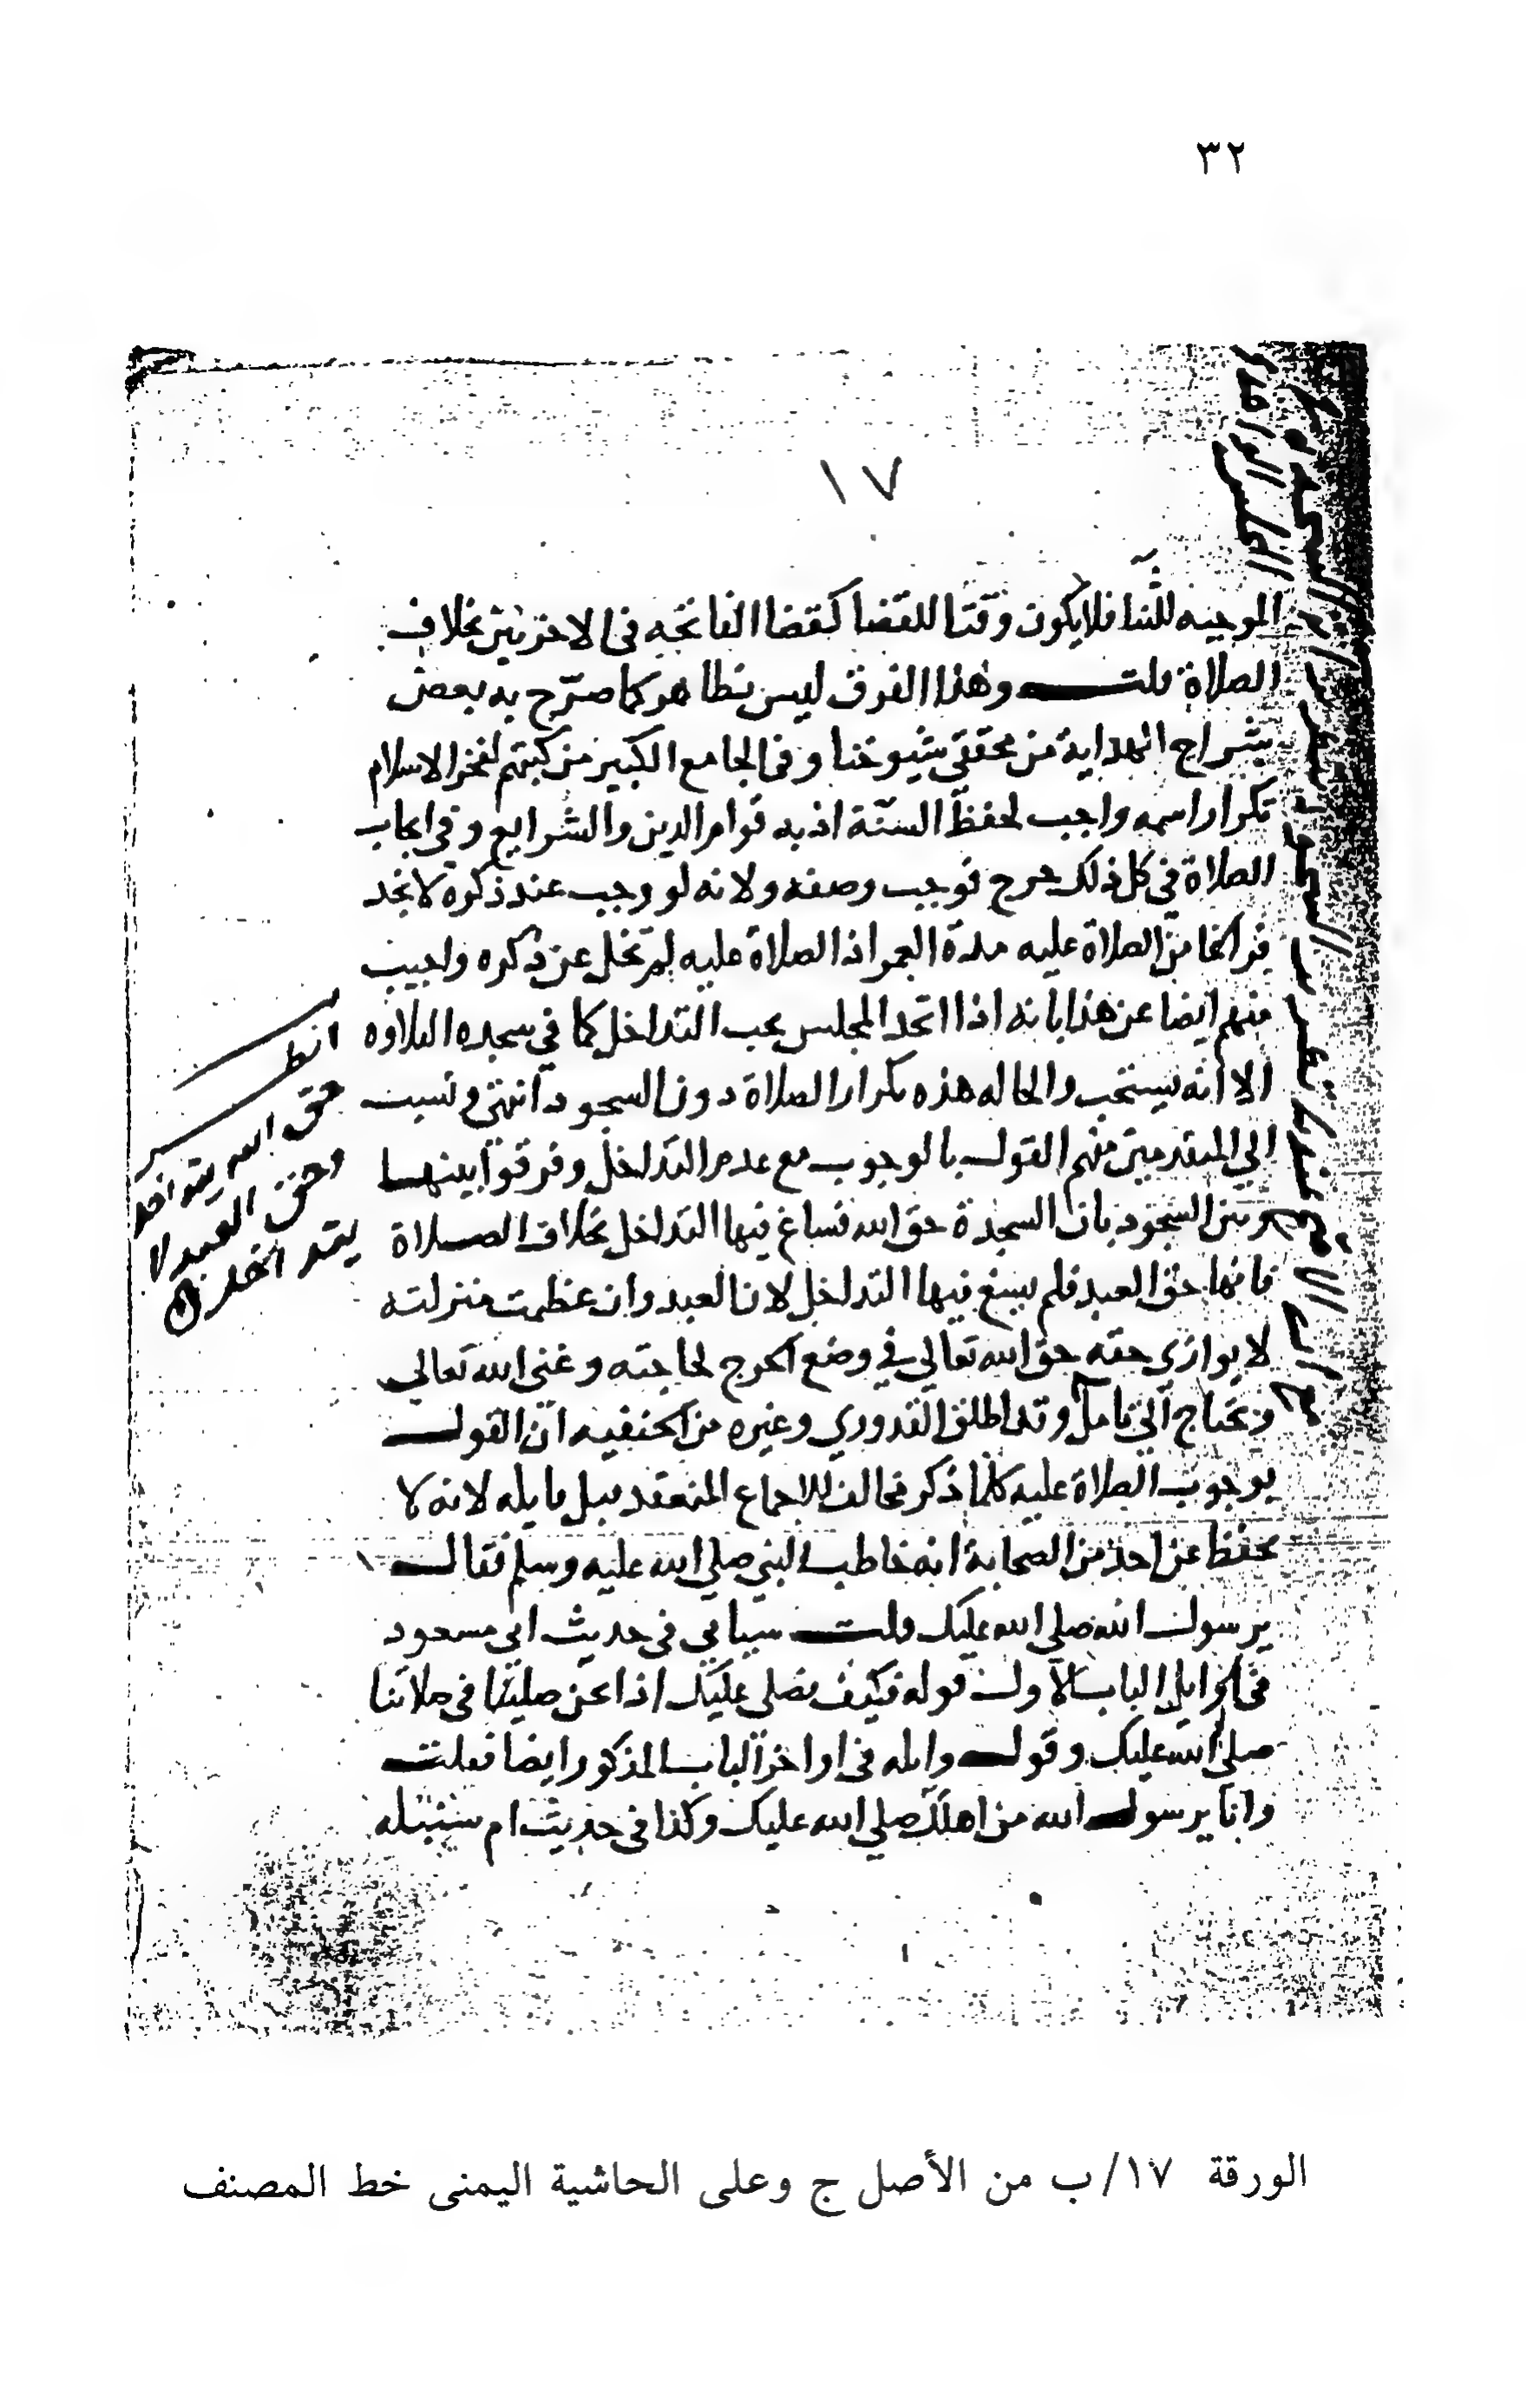 ٣٢
١٧
الموجبه للثنا فلا يكون وقتا للقضا كقضا الفاتحه فى الاخريين بخلاف
الصلاة قلت وهذا الفرق ليس بظاهر كما صرّح به بعض
شراح الهداية من محققى شيوخنا وفى الجامع الكبير من كتبهم لفخر الاسلام
تكرار اسمه واجب لحفظ السنّة اذ به قوام الدين والشرايع وفى ايجاب
الصلاة في كل ذلك حرج فوجب وصفه ولانه لو وجب عند ذكره لا نجد
فراغا من الصلاة عليه مدة العمر اذ الصلاة عليه لم تخل عن ذكره واجيب
منهم ايضا عن هذا بانه اذا اتحد المجلس يجب التداخل كما في سجده التلاوه
الا انه يستحب والحاله هذه تكرار الصلاة دون السجود انتهى ونسبت
الي المتقدمين منهم القول بالوجوب مع عدم التداخل وفرقوا بينها
وبين السجود بان السجدة حق الله فساغ فيها التداخل بخلاف الصلاة
فانها حق العبد فلم يسغ فيها التداخل لان العبد وان عظمت منزلته
لا يوازي حقه حق الله تعالي في وضع الحرج لحاجته وغنى الله تعالى
ويحتاج الى تامل وقد اطلق القدوري وغيره من الحنفيه ان القول
بوجوب الصلاة عليه كلما ذكر مخالف للاجماع المنعقد قبل قايله لانه لا
يحفظ عن احد من الصحابة انه خاطب النبي صلي الله عليه وسلم فقال
يرسول الله صلى الله عليك قلت سياتي فى حديث ابى مسعود
فى اوايل الباب الاول قوله فكيف نصلى عليك اذا نحن صلينا فى صلاتنا
صلى الله عليك وقول واثله فى اواخر الباب المذكور ايضا فقلت
وانا يرسول الله من اهلك صلي الله عليك وكذا فى حديث ام سنبله
انظر
حق الله يتداخل
وحق العبد لا
يتداخل
الورقة ١٧/ب من الأصل ج وعلى الحاشية اليمنى خط المصنف